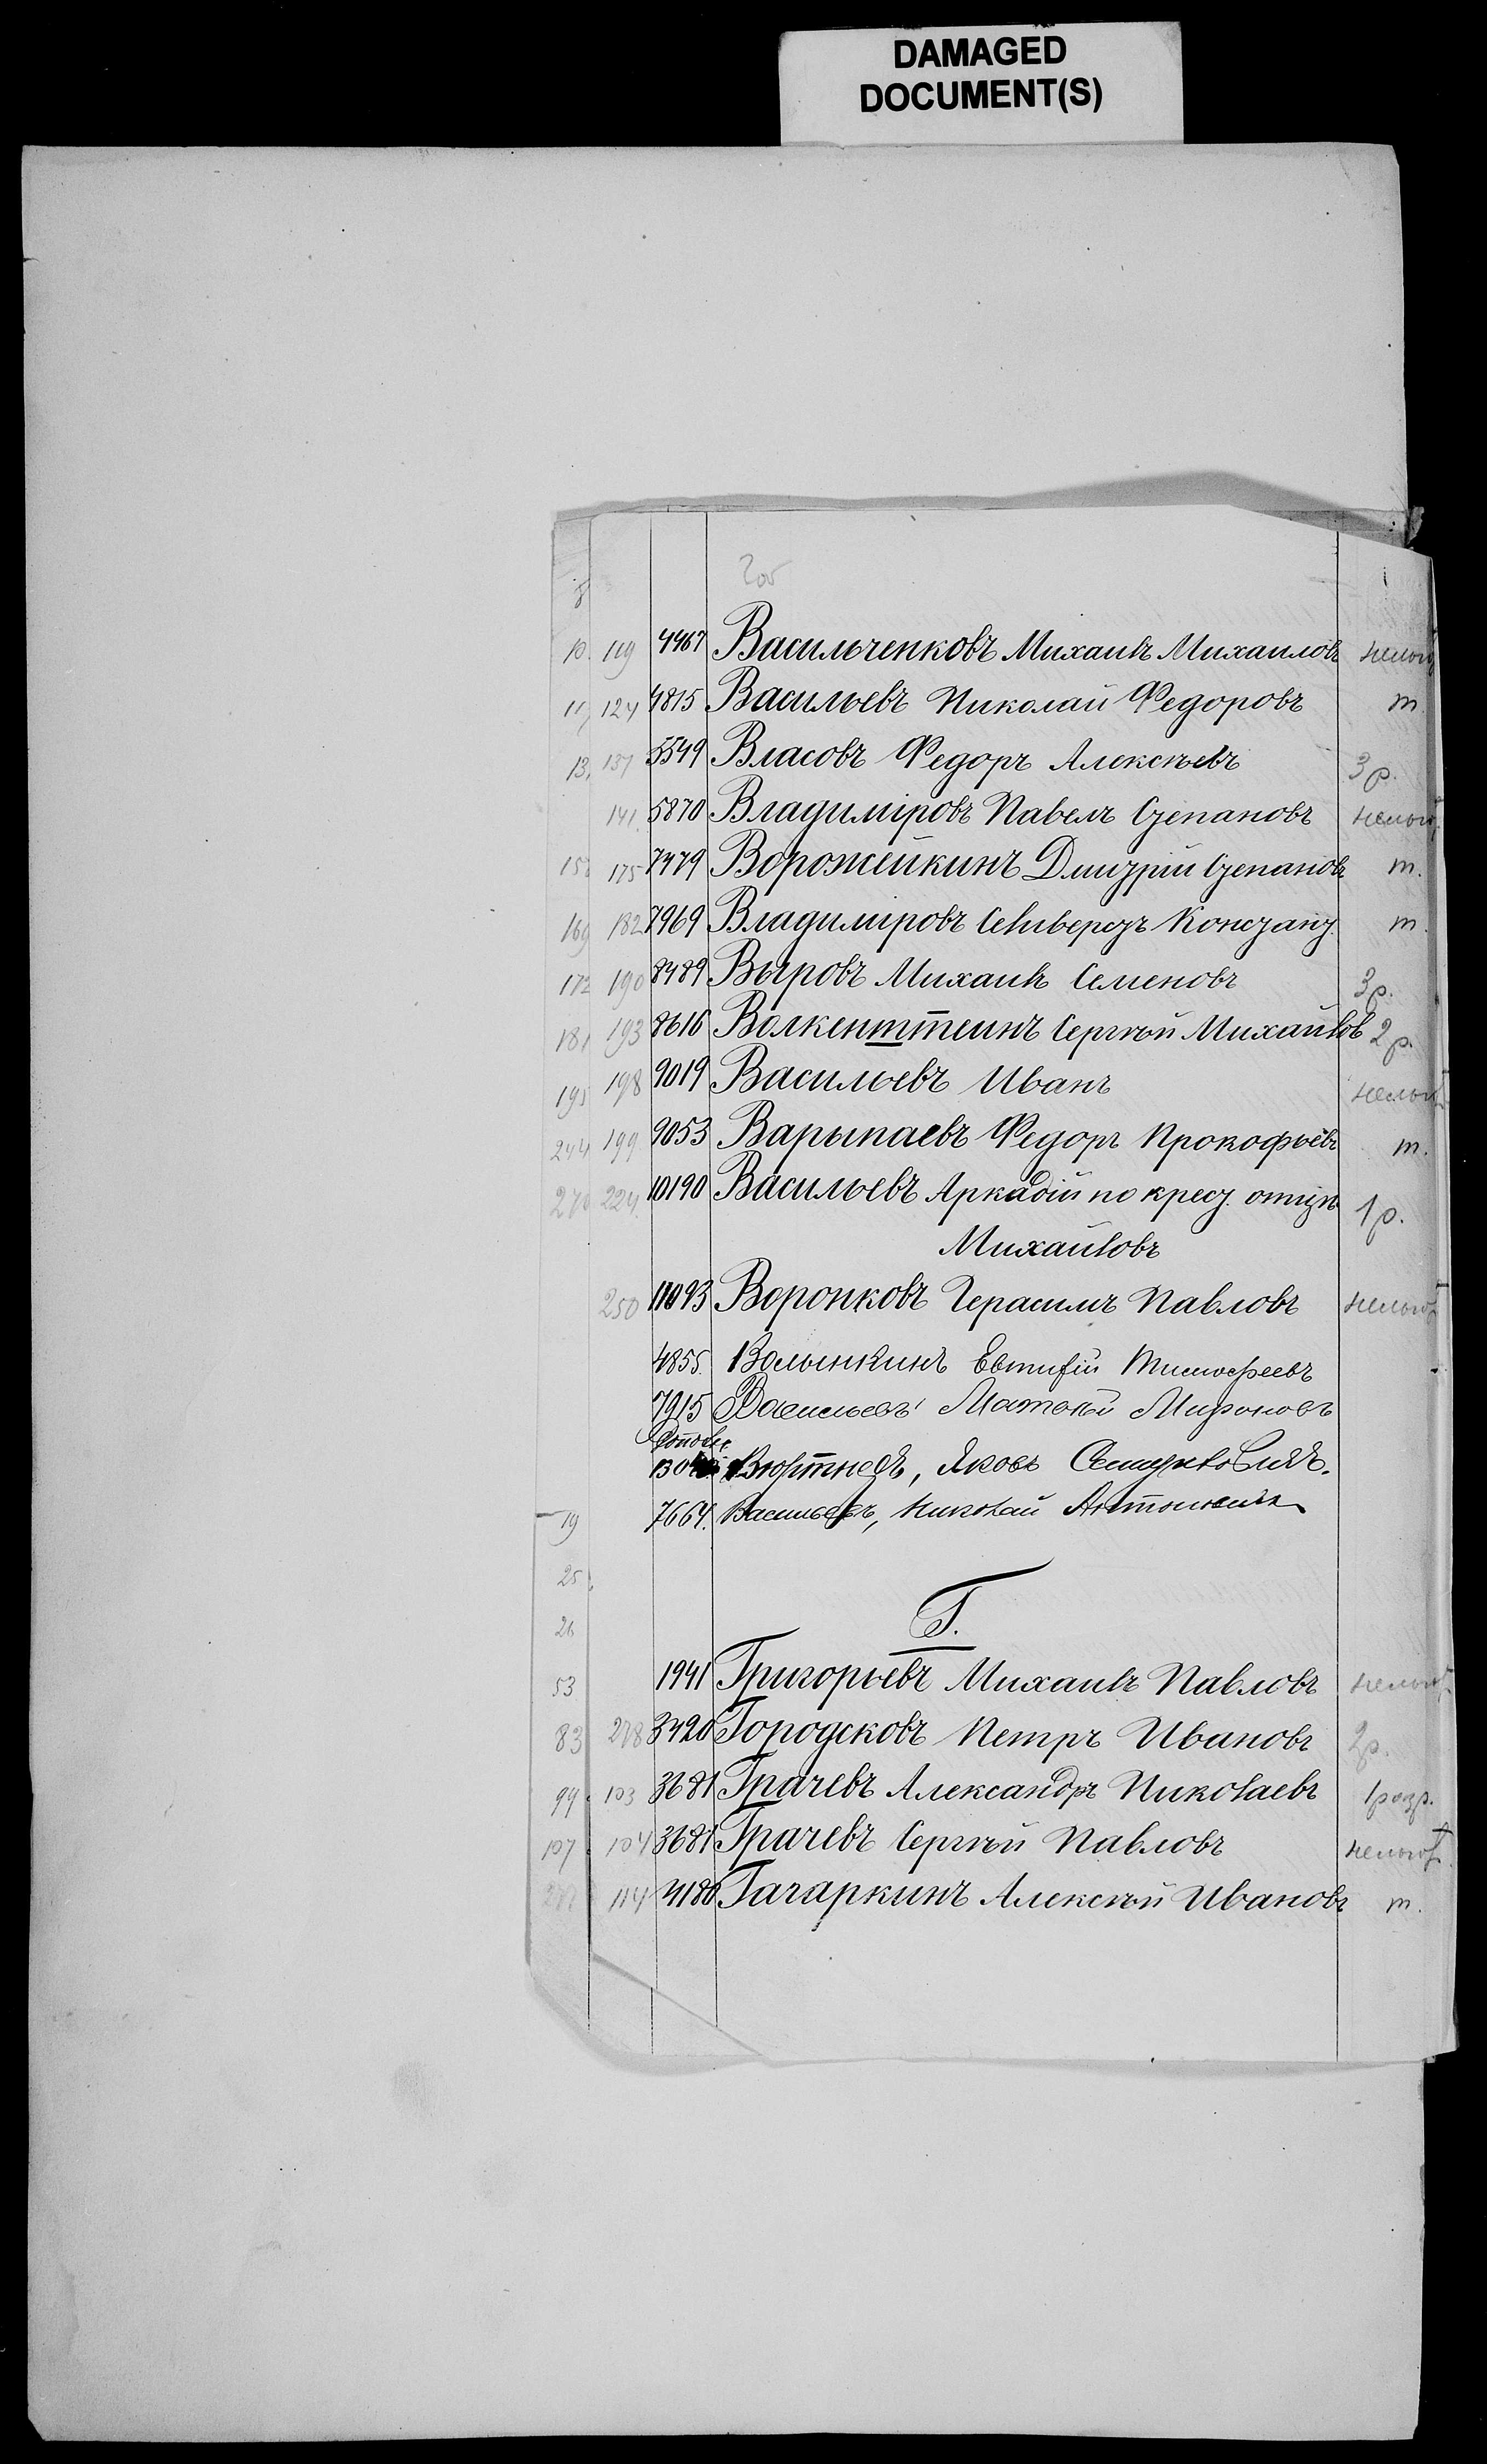 DAMAGED
DOCUMENT(S)
8
10. 119 4467 Васильченковъ Михаилъ Михаиловъ нельг
11, 124 4815 Васильевъ Николай Федоровъ т.
13, 137 5549 Власовъ Федоръ Алексѣевъ 3 р.
141. 5870 Владиміровъ Павелъ Степановъ нельг
175 7479 Ворожейкинъ Дмитрій Степановъ т.
169 182 7969 Владиміровъ Сильверстъ Констант. т.
172 190 8489 Выровъ Михаилъ Семеновъ 3 р.
181 193 8616 Волкенштеинъ Сергѣй Михайлов 2 р.
195 198 9019 Васильевъ Иванъ нельг
244 199 9053 Варыпаевъ Федоръ Прокофьевъ т.
270 224. 10190 Васильевъ Аркадій по крест. отцу 1 р.
Михайловъ
250 11093 Воронковъ Герасимъ Павловъ нельгот
4855. Волынкинъ Евтифій Тимофеевъ
7915 Васильевъ Матвѣй Мироновъ
Вюртнеръ, Яковъ
19 7664. Васильевъ, Николай Антоновичъ
25.
26 Г.
53 1941 Григорьевъ Михаилъ Павловъ нельг
83 278 3420 Городсковъ Петръ Ивановъ 2 р.
99. 103 3681 Грачевъ Александръ Николаевъ 1 разр.
107 104 3681 Грачевъ Сергѣй Павловъ нельгот.
114 4180 Гагаркинъ Алексѣй Ивановъ т.